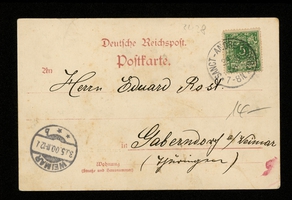 Deutsche Reichspost.
Postkarte.
An
Herrn Eduard Rost
14.—
in
Gaberndorf b/Weimar
(Thüringen)
Wohnung
(Straße und Hausnummer)
SANCT-ANDREASBERG
5
WEIMAR